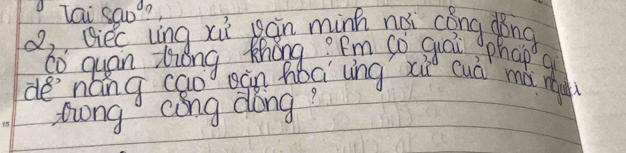 Tại sao?
2, Việc ứng xử văn minh nơi công đồng
có quan trọng không? Em có giải pháp gì
để nâng cao văn hoá ứng xử của mọi người
trong công đồng?